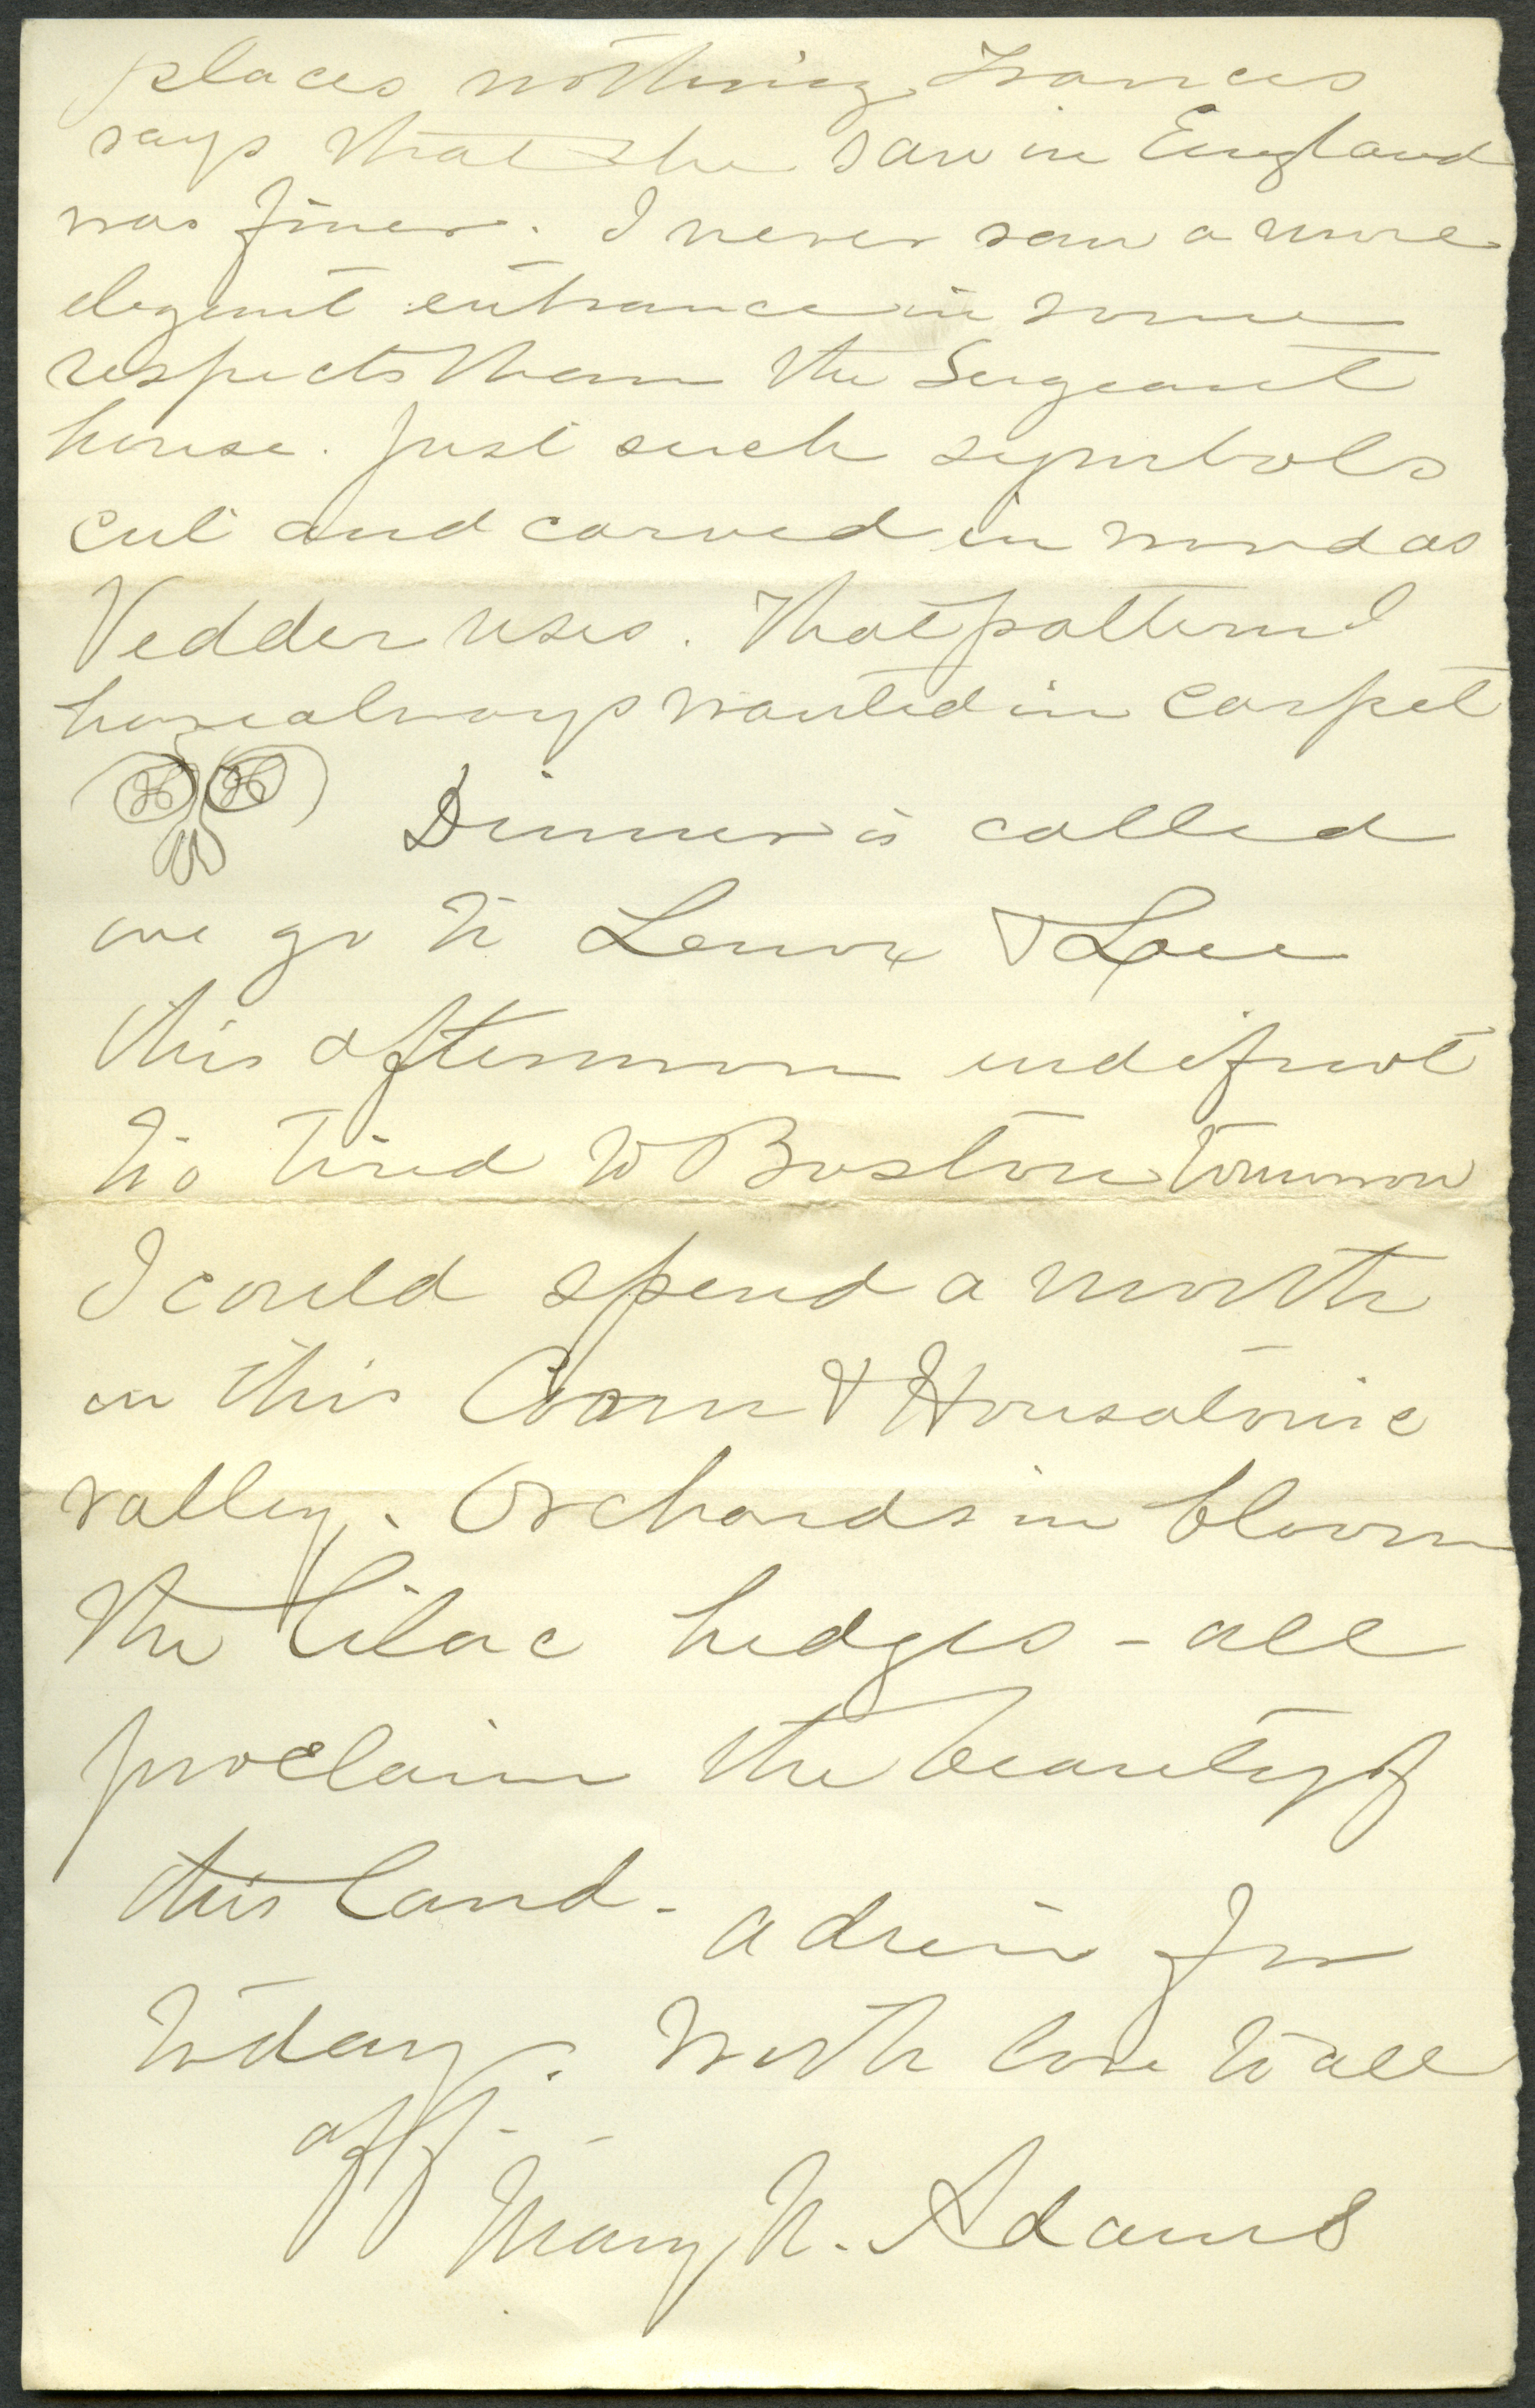 places nothing Frances
says that she saw in England
was finer. I never saw a more
elegant entrance in some
respects than the Sergeant
house. Just such symbols
cut and carved in wood as
Vedder uses. That pattern I
have always wanted in carpet
Dinner is called
we go to Lenox & Lee
this afternoon and if not
too tired to Boston tomorrow
I could spend a month
in this Conn & Housatonic
valley. Orchards in bloom
the lilac hedges - all
proclaim the beauty of
this land - adieu for
today. With love to all
aff -
Mary N. Adams